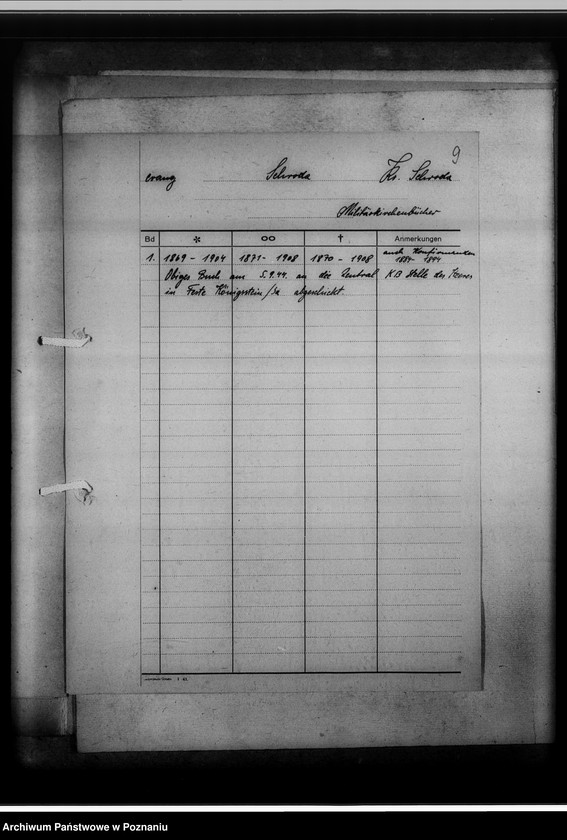 9
evang Schroda Krs. Schroda
Militärkirchenbücher
Bd * ∞ † Anmerkungen
1. 1869 - 1904 1871 - 1908 1870 - 1908 auch Konfirmanden
1884 - 1894
Obiges Buch am 5.9.44. an die Zentral K.B. Stelle des Heeres
in Feste Königstein/Sa abgeschickt.
Archiwum Państwowe w Poznaniu